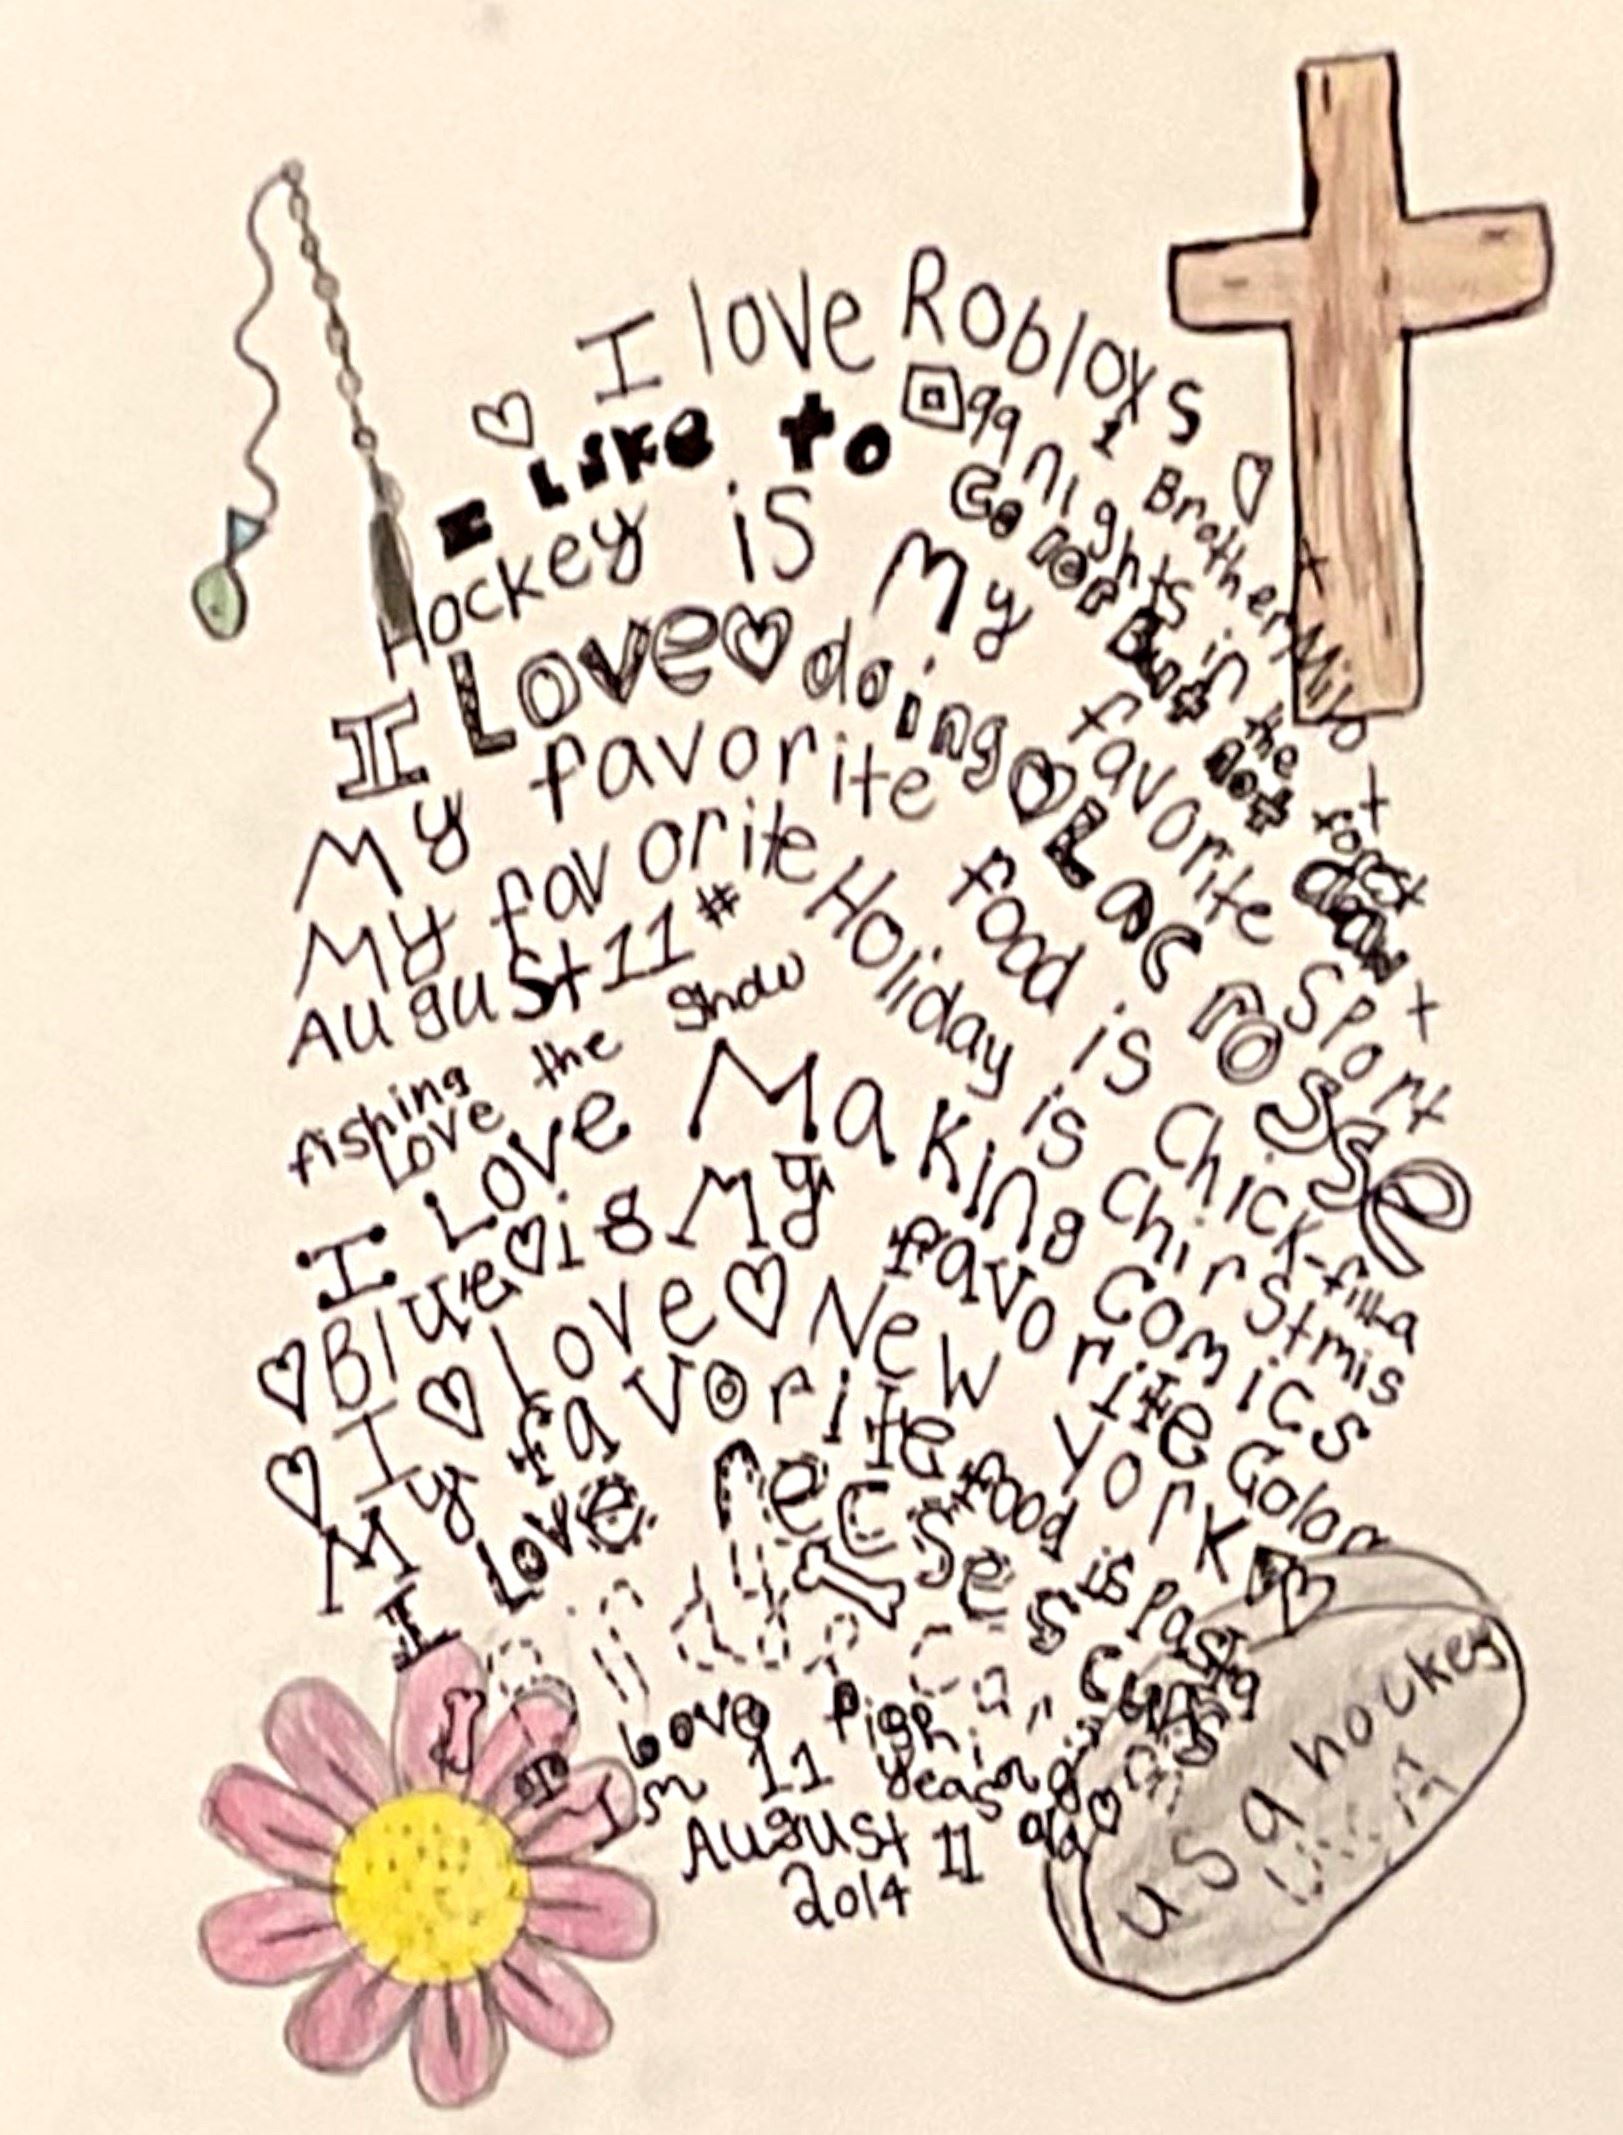 I love Robloxs
I Brother Milo
99 nights in the forest
I Like to Go for But not deer
Hockey is My favorite Sport
I Love doing Lacrosse
My favorite food is Chick-filla
My favorite Holiday is Chirstmis
August 11 #
fishing
Love the show
I Love Making comics
Blue is My favorite Color
I love New york
My favorite food is pasta
I Love recses cups
Love fishing
I'm 11 years old
August 11
2014
usa hockey
USA